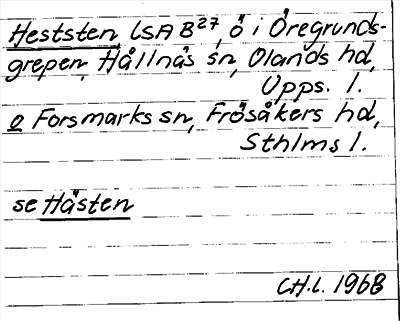 Heststen, LSA B27, ö i Öregrunds-
grepen, Hållnäs sn, Olands hd,
Upps. l.
o Forsmarks sn, Frösåkers hd,
Sthlms l.
se Hästen
CH.L. 1968